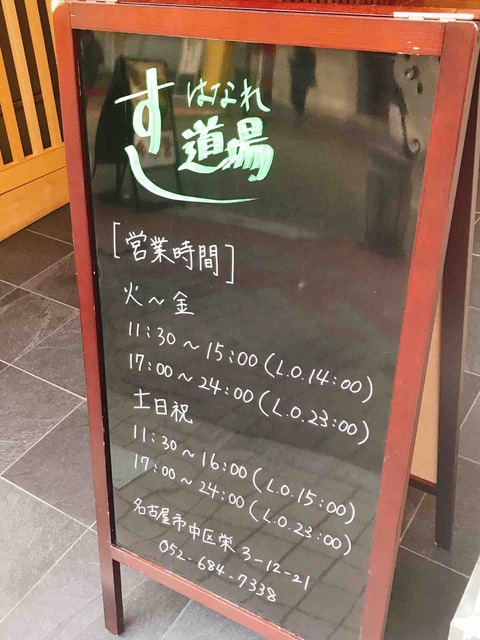 はなれ
すし道場
[営業時間]
火～金
11:30～15:00(L.O.14:00)
17:00～24:00(L.O.23:00)
土日祝
11:30～16:00(L.O.15:00)
17:00～24:00(L.O.23:00)
名古屋市中区栄3-12-21
052-684-7338